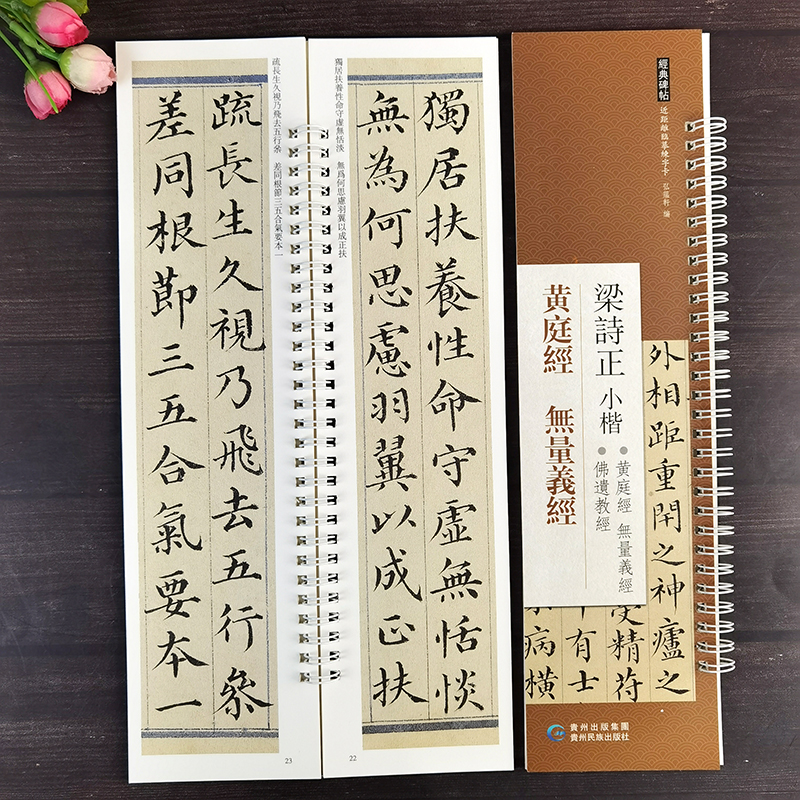 經典碑帖
近距離臨摹練字卡 弘蘊軒 編
梁詩正 小楷
●黄庭經 無量義經
●佛遺教經
黄庭經 無量義經
外相距重閇之神廬之
受精符
有士
病横
貴州出版集團
貴州民族出版社
獨居扶養性命守虛無恬淡 無爲何思慮羽翼以成正扶
獨居扶養性命守虛無恬惔
無為何思慮羽翼以成正扶
22
疏長生久視乃飛去五行叅 差同根節三五合氣要本一
疏長生久視乃飛去五行叅
差同根節三五合氣要本一
23